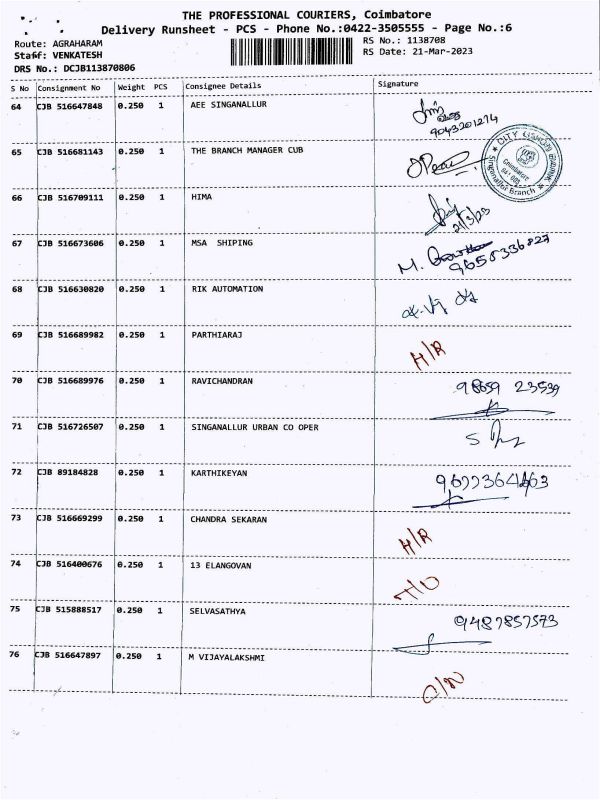 THE PROFESSIONAL COURIERS, Coimbatore
Delivery Runsheet - PCS - Phone No.:0422-3505555 - Page No.:6
Route: AGRAHARAM RS No.: 1138708
Staff: VENKATESH RS Date: 21-Mar-2023
DRS No.: DCJB113870806
S No Consignment No Weight PCS Consignee Details Signature
64 CJB 516647848 0.250 1 AEE SINGANALLUR
9043201274
65 CJB 516681143 0.250 1 THE BRANCH MANAGER CUB
CITY UNION BANK
Coimbatore
Singanallur Branch
66 CJB 516709111 0.250 1 HIMA
21/3/23
67 CJB 516673606 0.250 1 MSA SHIPING
M.
9658336827
68 CJB 516630820 0.250 1 RIK AUTOMATION
69 CJB 516689982 0.250 1 PARTHIARAJ
H/R
70 CJB 516689976 0.250 1 RAVICHANDRAN
98659 23539
71 CJB 516726507 0.250 1 SINGANALLUR URBAN CO OPER
72 CJB 89184828 0.250 1 KARTHIKEYAN
73 CJB 516669299 0.250 1 CHANDRA SEKARAN
H/R
74 CJB 516400676 0.250 1 13 ELANGOVAN
75 CJB 515888517 0.250 1 SELVASATHYA
9487857573
76 CJB 516647897 0.250 1 M VIJAYALAKSHMI